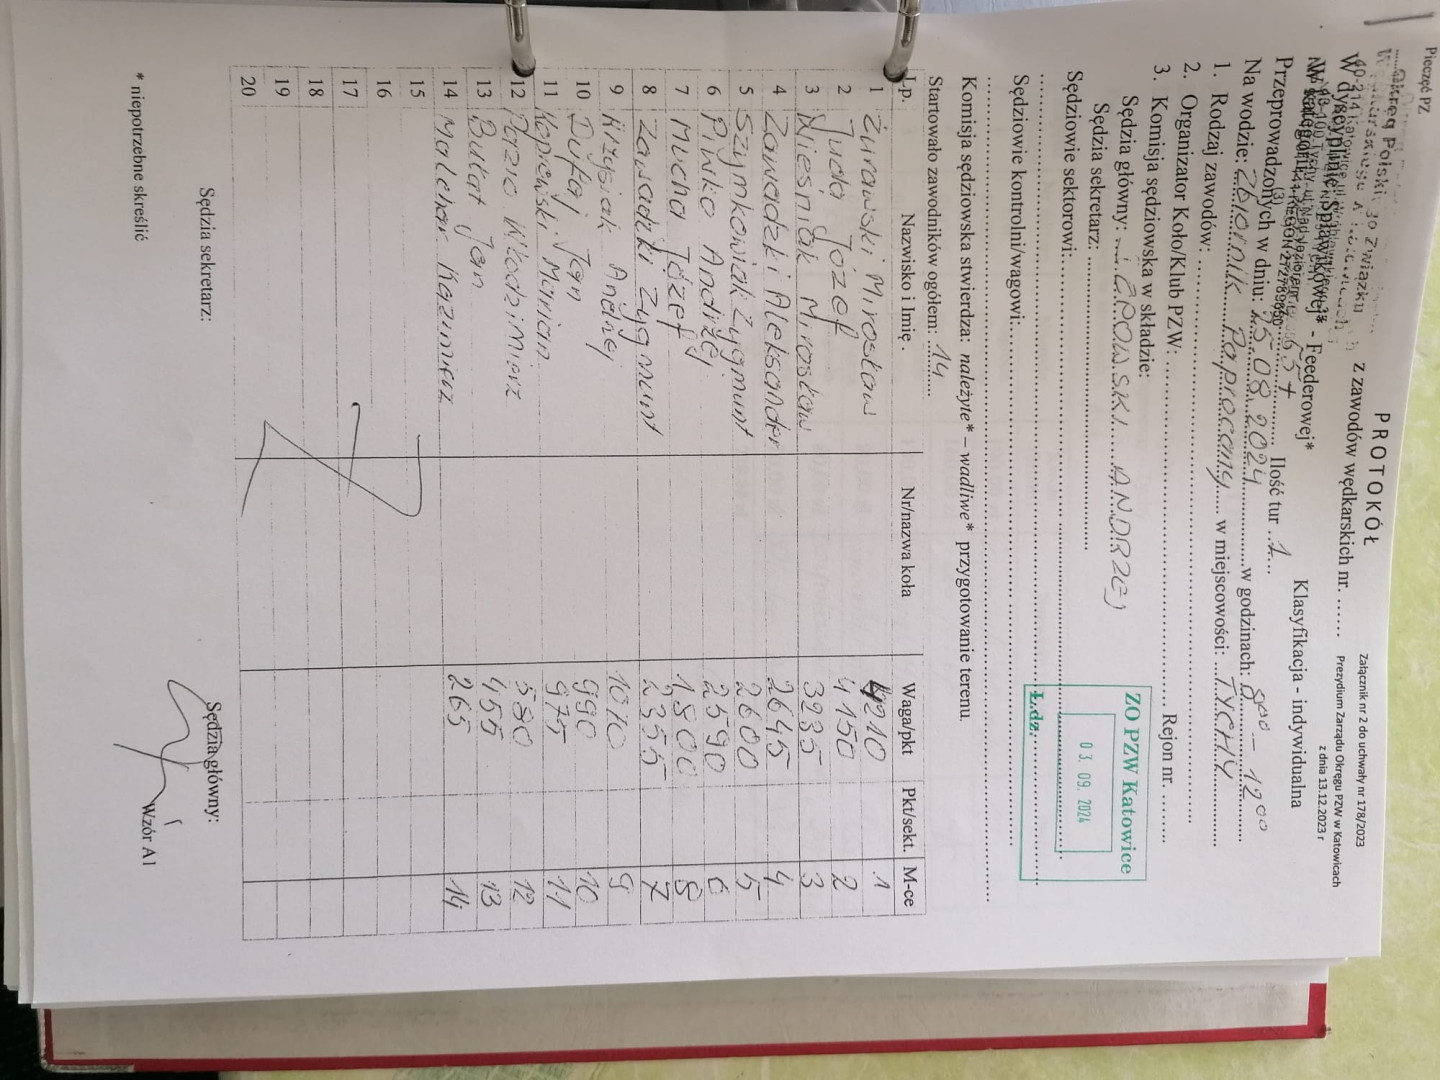 Pieczęć PZ
PROTOKÓŁ
z zawodów wędkarskich nr. ......
Załącznik nr 2 do uchwały nr 178/2023
Prezydium Zarządu Okręgu PZW w Katowicach
z dnia 13.12.2023 r
W dyscyplinie: Spławikowej* - Feederowej*
Klasyfikacja - indywidualna
Przeprowadzonych w dniu: 25.08.2024 w godzinach: 8⁰⁰ - 12⁰⁰
Ilość tur ..1...
Na wodzie: Zbiornik Paprocany w miejscowości: TYCHY
1. Rodzaj zawodów:
2. Organizator Koło/Klub PZW: Rejon nr
3. Komisja sędziowska w składzie:
Sędzia główny: ANDRZEJ
Sędzia sekretarz:
Sędziowie sektorowi:
Sędziowie kontrolni/wagowi:
ZO PZW Katowice
03. 09. 2024
Ł.dz.
Komisja sędziowska stwierdza: należyte* – wadliwe* przygotowanie terenu.
Startowało zawodników ogółem: 14
L.p. Nazwisko i Imię . Nr/nazwa koła Waga/pkt Pkt/sekt. M-ce
1 Żurawski Mirosław 4210 1
2 Juda Józef 4150 2
3 Wieśniak Mirosław 3235 3
4 Zawadzki Aleksander 2645 4
5 Szymkowiak Zygmunt 2600 5
6 Piwko Andrzej 2590 6
7 Mucha Józef 1500 8
8 Zawadzki Zygmunt 2355 7
9 Krzysiak Andrzej 1010 9
10 Dufaj Jan 990 10
11 Marian 975 11
12 Włodzimierz 580 12
13 Bukat Jan 455 13
14 Malcher Kazimierz 265 14
15
16
17
18
19
20
Sędzia sekretarz:
Sędzia główny:
* niepotrzebne skreślić
Wzór A1